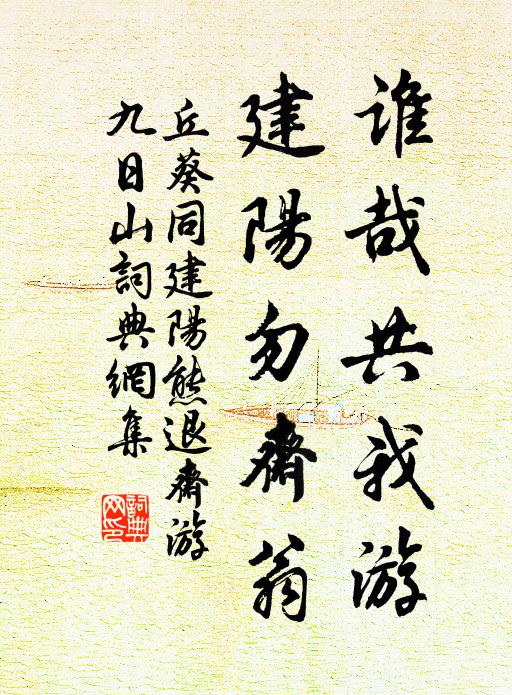 誰哉共我游
建陽勿齋翁
丘葵同建陽熊退齋游
九日山詞典網集
詞典
网印